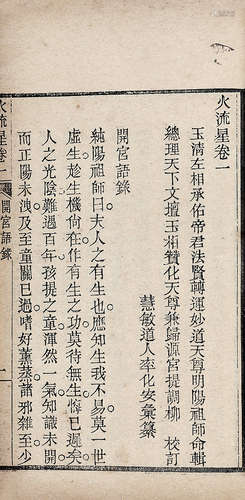 火流星卷一
玉清左相承佑帝君法賢轉運妙道天尊明陽祖師命輯
總理天下文壇玉相贊化天尊兼歸源宮提調柳　校訂
慧敏道人率化安彙纂
開宮語錄
純陽祖師曰夫人之有生也應知生我不易莫一世
虛生趁生機尚在作有生之功莫待無生悔已遲矣
人之光陰難過百年孩提之童渾然一氣知識未開
而正陽未洩及至童關已過嗜好薰蒸諸邪雜至少
火流星卷一
開宮語錄
一